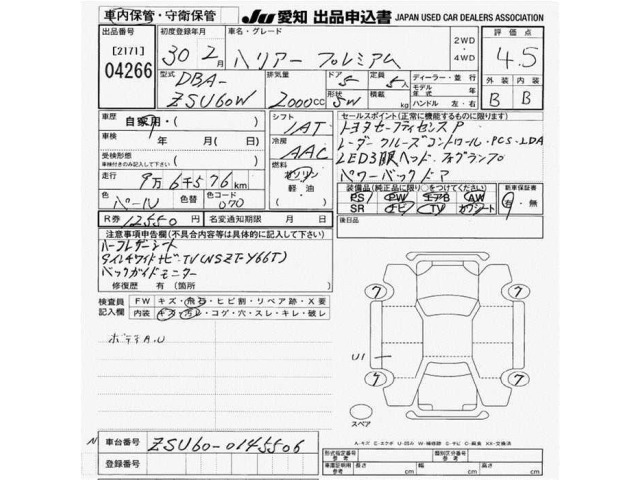 車内保管・守衛保管
JU 愛知 出品申込書 JAPAN USED CAR DEALERS ASSOCIATION
出品番号
[2171]
04266
初度登録年月
30年 2月
車名・グレード
ハリアー プレミアム
2WD
・
4WD
評価点
4.5
型式
DBA-
ZSU60W
排気量
2000cc
ドア
5
形状
SW
定員
5人
積載
kg
ディーラー・並行
モデル年式 年
ハンドル 左・右
外装 内装
B B
車歴
自家用・( )
車検
年 月(日)
受検形態
車検付きのみ記入して下さい
( )
シフト
IAT
冷房
AAC
燃料
ガソリン
軽油
( )
セールスポイント(正常に機能するものに限ります)
トヨタセーフティセンスP
レーダークルーズコントロール・PCS・LDA
LED3眼ヘッド、フォグランプ
パワーバックドア
走行
9万6千576km
色
パール
色替
色コード
070
装備品(純正品に限り○をつけてください)
PS PW エアB AW
SR ナビ TV カワシート
新車保証書
有・無
R券 12550円
名変通知期限 月 日
後日品
注意事項申告欄(不具合内容等は具体的に記入して下さい)
ハーフレザーシート
9インチワイドナビ・TV(NSZT-Y66T)
バックガイドモニター
修復歴 有(箇所 )
検査員記入欄
FW キズ・飛石・ヒビ割・リペア跡・X要
内装 キズ・汚レ・コゲ・穴・スレ・キレ・破レ
ボデーA.U
7 7
U1
7 7
スペア
A=キズ E=エクボ U=凹み W=補修跡 S=サビ C=腐食 XX=交換済
N
車台番号 ZSU60-0145506
登録番号
型式指定番号 類別区分番号
車庫証明用記載欄 長さ cm 幅 cm 高さ cm